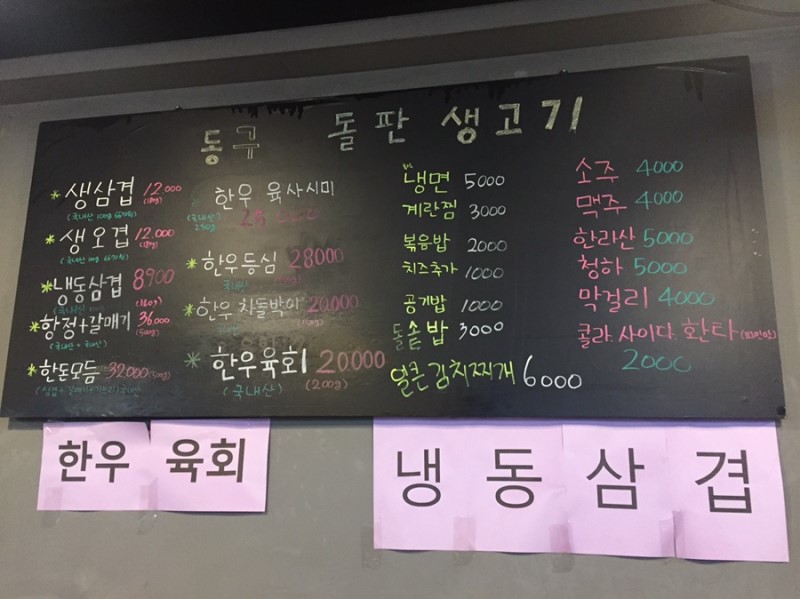 동구 돌판 생고기
* 생삼겹 12.000
(180g)
* 생오겹 12.000
(180g)
* 냉동삼겹 8900
(180g)
* 항정+갈매기 36,000
(국내산 + 국내산) (500g)
* 한돈모듬 32000 (500g)
한우 육사시미
(국내산)
250g
* 한우등심 28000
* 한우 차돌박이 20.000
* 한우육회 20.000
(국내산) (200g)
냉면 5000
계란찜 3000
볶음밥 2000
치즈추가 1000
공기밥 1000
돌솥밥 3000
얼큰김치찌개 6000
소주 4000
맥주 4000
한라산 5000
청하 5000
막걸리 4000
콜라. 사이다. 환타
2000
한우 육회
냉동삼겹